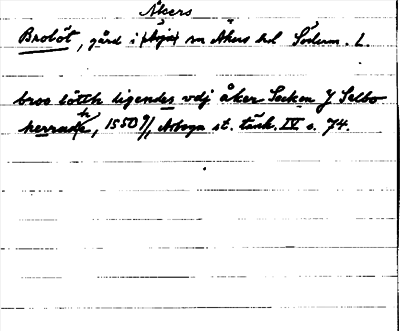 Åkers
Brolöt, gård i (Asja) sn Åkers hd Söderm. L.
bros lötth ligendes vdj åker Socken J Selbo
herradh, 1550 9/1 Arboga st. tänk. IV s. 74.